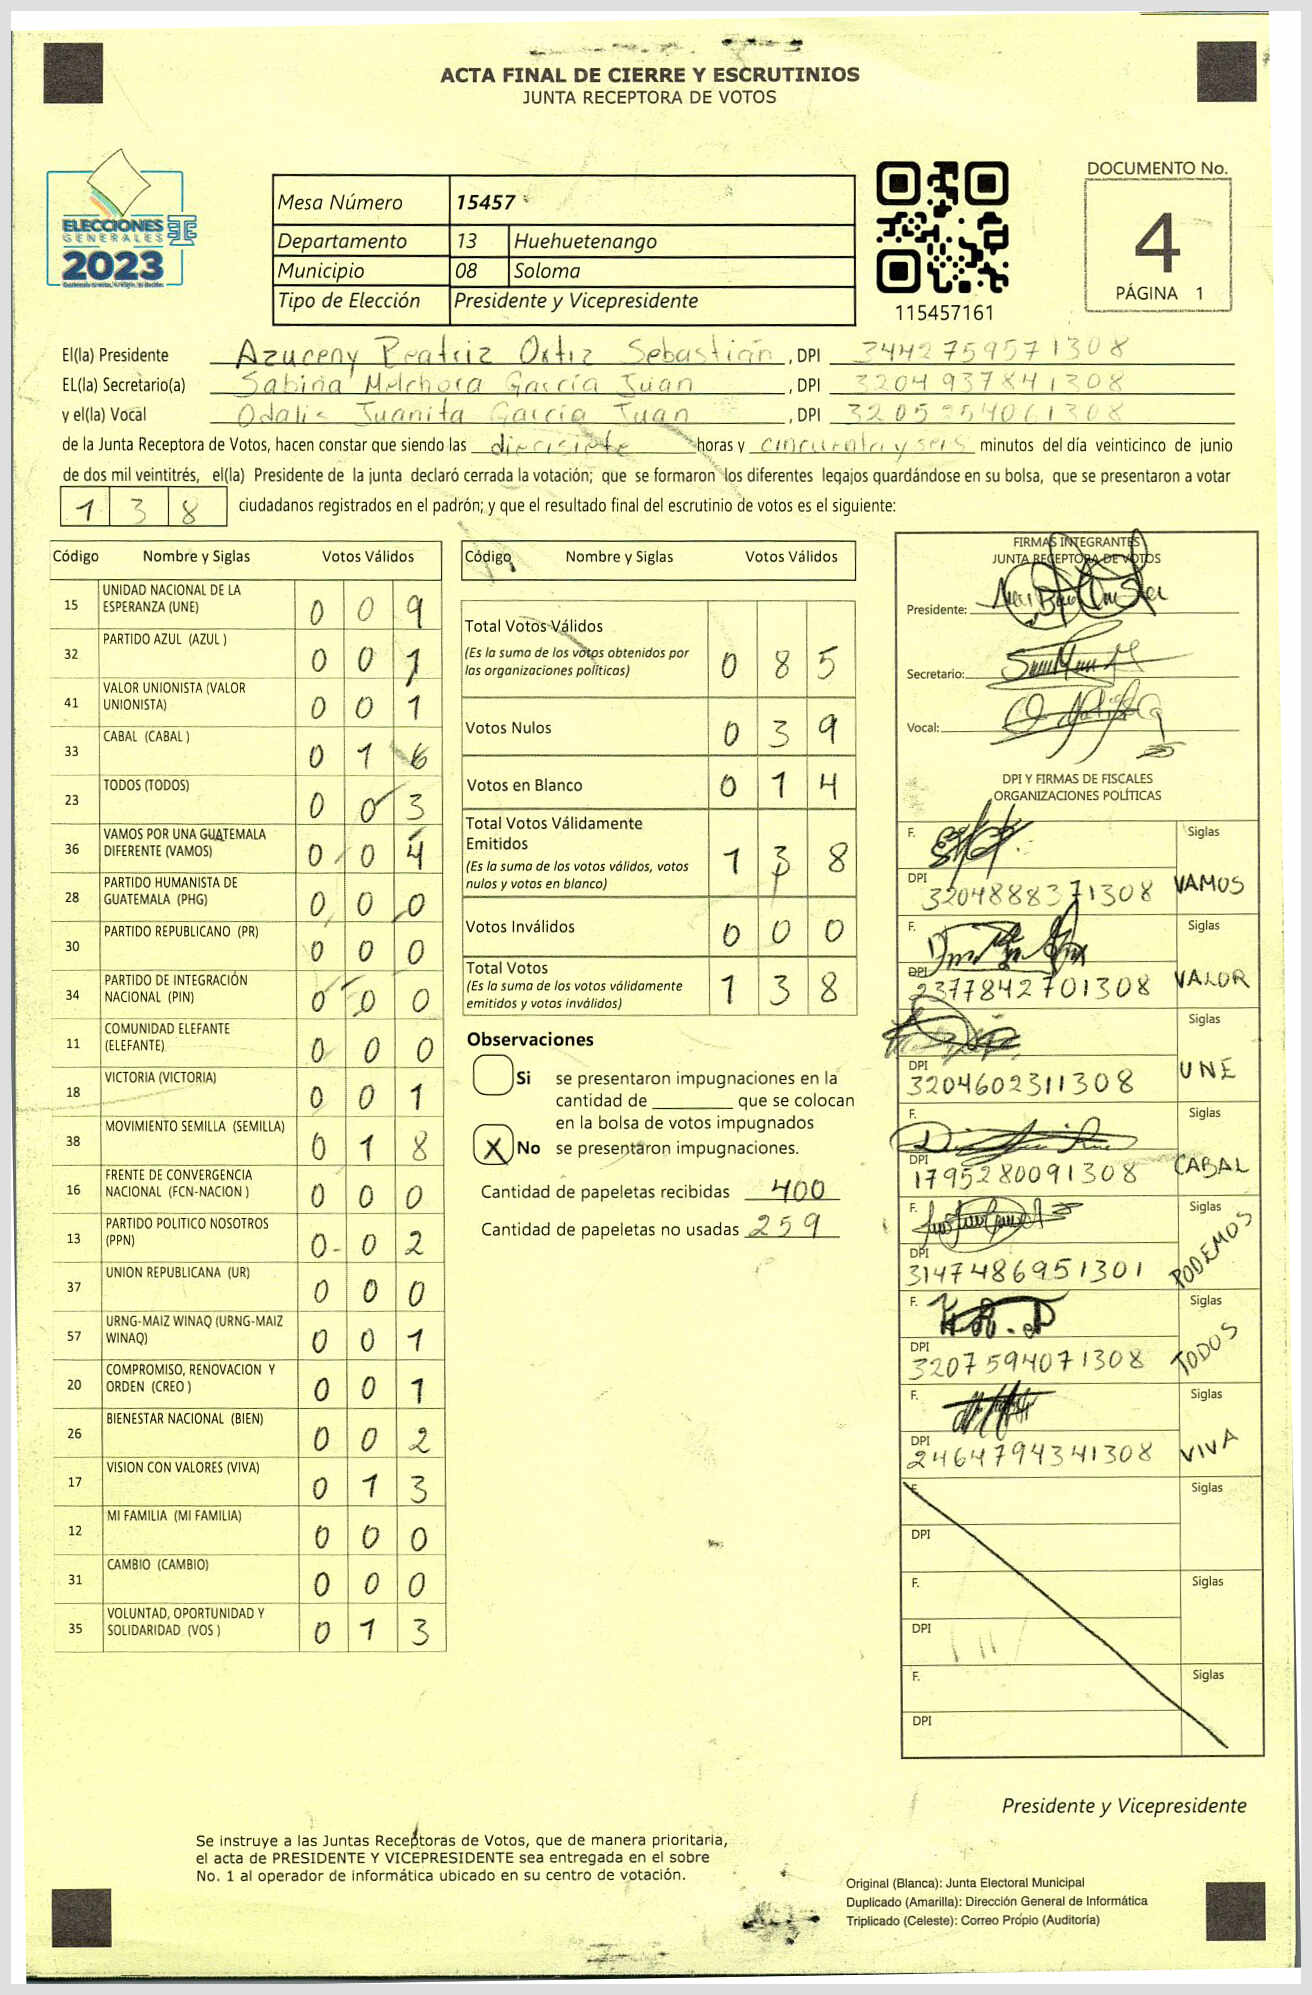 ACTA FINAL DE CIERRE Y ESCRUTINIOS
JUNTA RECEPTORA DE VOTOS
ELECCIONES
GENERALES
2023
Mesa Número 15457
Departamento 13 Huehuetenango
Municipio 08 Soloma
Tipo de Elección Presidente y Vicepresidente
115457161
DOCUMENTO No.
4
PÁGINA 1
El(la) Presidente Azuceny Beatriz Ortiz Sebastián, DPI 3442759571308
EL(la) Secretario(a) Sabina Melchora García Juan, DPI 3204937841308
y el(la) Vocal Odalis Juanita García Juan, DPI
de la Junta Receptora de Votos, hacen constar que siendo las diecisiete horas y cincuenta y seis minutos del día veinticinco de junio
de dos mil veintitrés, el(la) Presidente de la junta declaró cerrada la votación; que se formaron los diferentes legajos guardándose en su bolsa, que se presentaron a votar
1 3 8 ciudadanos registrados en el padrón; y que el resultado final del escrutinio de votos es el siguiente:
Código Nombre y Siglas Votos Válidos
15 UNIDAD NACIONAL DE LA
ESPERANZA (UNE) 0 0 9
32 PARTIDO AZUL (AZUL ) 0 0 1
41 VALOR UNIONISTA (VALOR
UNIONISTA) 0 0 1
33 CABAL (CABAL ) 0 1 6
23 TODOS (TODOS) 0 0 3
36 VAMOS POR UNA GUATEMALA
DIFERENTE (VAMOS) 0 0 4
28 PARTIDO HUMANISTA DE
GUATEMALA (PHG) 0 0 0
30 PARTIDO REPUBLICANO (PR) 0 0 0
34 PARTIDO DE INTEGRACIÓN
NACIONAL (PIN) 0 0 0
11 COMUNIDAD ELEFANTE
(ELEFANTE) 0 0 0
18 VICTORIA (VICTORIA) 0 0 1
38 MOVIMIENTO SEMILLA (SEMILLA) 0 1 8
16 FRENTE DE CONVERGENCIA
NACIONAL (FCN-NACION ) 0 0 0
13 PARTIDO POLITICO NOSOTROS
(PPN) 0 0 2
37 UNION REPUBLICANA (UR) 0 0 0
57 URNG-MAIZ WINAQ (URNG-MAIZ
WINAQ) 0 0 1
20 COMPROMISO, RENOVACION Y
ORDEN (CREO ) 0 0 1
26 BIENESTAR NACIONAL (BIEN) 0 0 2
17 VISION CON VALORES (VIVA) 0 1 3
12 MI FAMILIA (MI FAMILIA) 0 0 0
31 CAMBIO (CAMBIO) 0 0 0
35 VOLUNTAD, OPORTUNIDAD Y
SOLIDARIDAD (VOS ) 0 1 3
Código Nombre y Siglas Votos Válidos
Total Votos Válidos
(Es la suma de los votos obtenidos por
las organizaciones políticas) 0 8 5
Votos Nulos 0 3 9
Votos en Blanco 0 1 4
Total Votos Válidamente
Emitidos
(Es la suma de los votos válidos, votos
nulos y votos en blanco) 1 3 8
Votos Inválidos 0 0 0
Total Votos
(Es la suma de los votos válidamente
emitidos y votos inválidos) 1 3 8
Observaciones
Si se presentaron impugnaciones en la
cantidad de que se colocan
en la bolsa de votos impugnados
X No se presentaron impugnaciones.
Cantidad de papeletas recibidas 400
Cantidad de papeletas no usadas 259
FIRMAS INTEGRANTES
JUNTA RECEPTORA DE VOTOS
Presidente:
Secretario:
Vocal:
DPI Y FIRMAS DE FISCALES
ORGANIZACIONES POLÍTICAS
F. Siglas
DPI 3204888371308 VAMOS
F. Siglas
DPI 2377842701308 VALOR
Siglas
DPI 3204602311308 UNE
F. Siglas
DPI 1795280091308 CABAL
F. Siglas
DPI 3147486951301 PODEMOS
F. Siglas
DPI 3207594071308 TODOS
F. Siglas
DPI 2464794341308 VIVA
F. Siglas
DPI
F. Siglas
DPI
F. Siglas
DPI
Presidente y Vicepresidente
Se instruye a las Juntas Receptoras de Votos, que de manera prioritaria,
el acta de PRESIDENTE Y VICEPRESIDENTE sea entregada en el sobre
No. 1 al operador de informática ubicado en su centro de votación.
Original (Blanca): Junta Electoral Municipal
Duplicado (Amarilla): Dirección General de Informática
Triplicado (Celeste): Correo Propio (Auditoría)